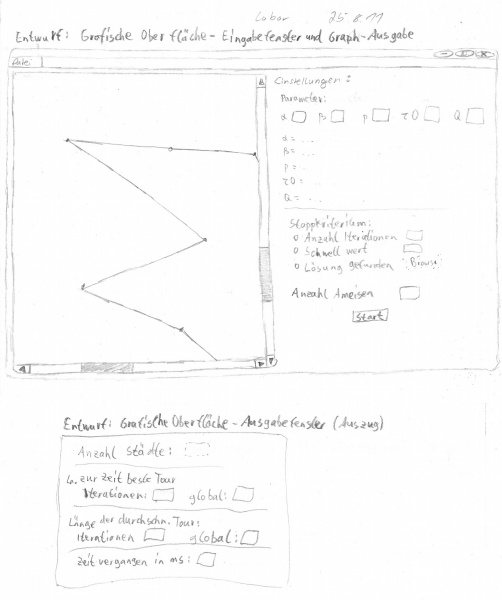 Labor 25.8.11
Entwurf: Grafische Oberfläche - Eingabefenster und Graph-Ausgabe
Datei
Einstellungen:
Parameter:
α β ρ τ0 Q
α = ...
β = ...
ρ = ...
τ0 = ..
Q = ...
Stoppkriterium:
o Anzahl Iterationen
o Schwellwert
o Lösung gefunden Browse
Anzahl Ameisen
Start
Entwurf: Grafische Oberfläche - Ausgabefenster (Auszug)
Anzahl Städte:
L. zur Zeit beste Tour
Iterationen: global:
Länge der durchschn. Tour:
Iterationen global:
Zeit vergangen in ms: